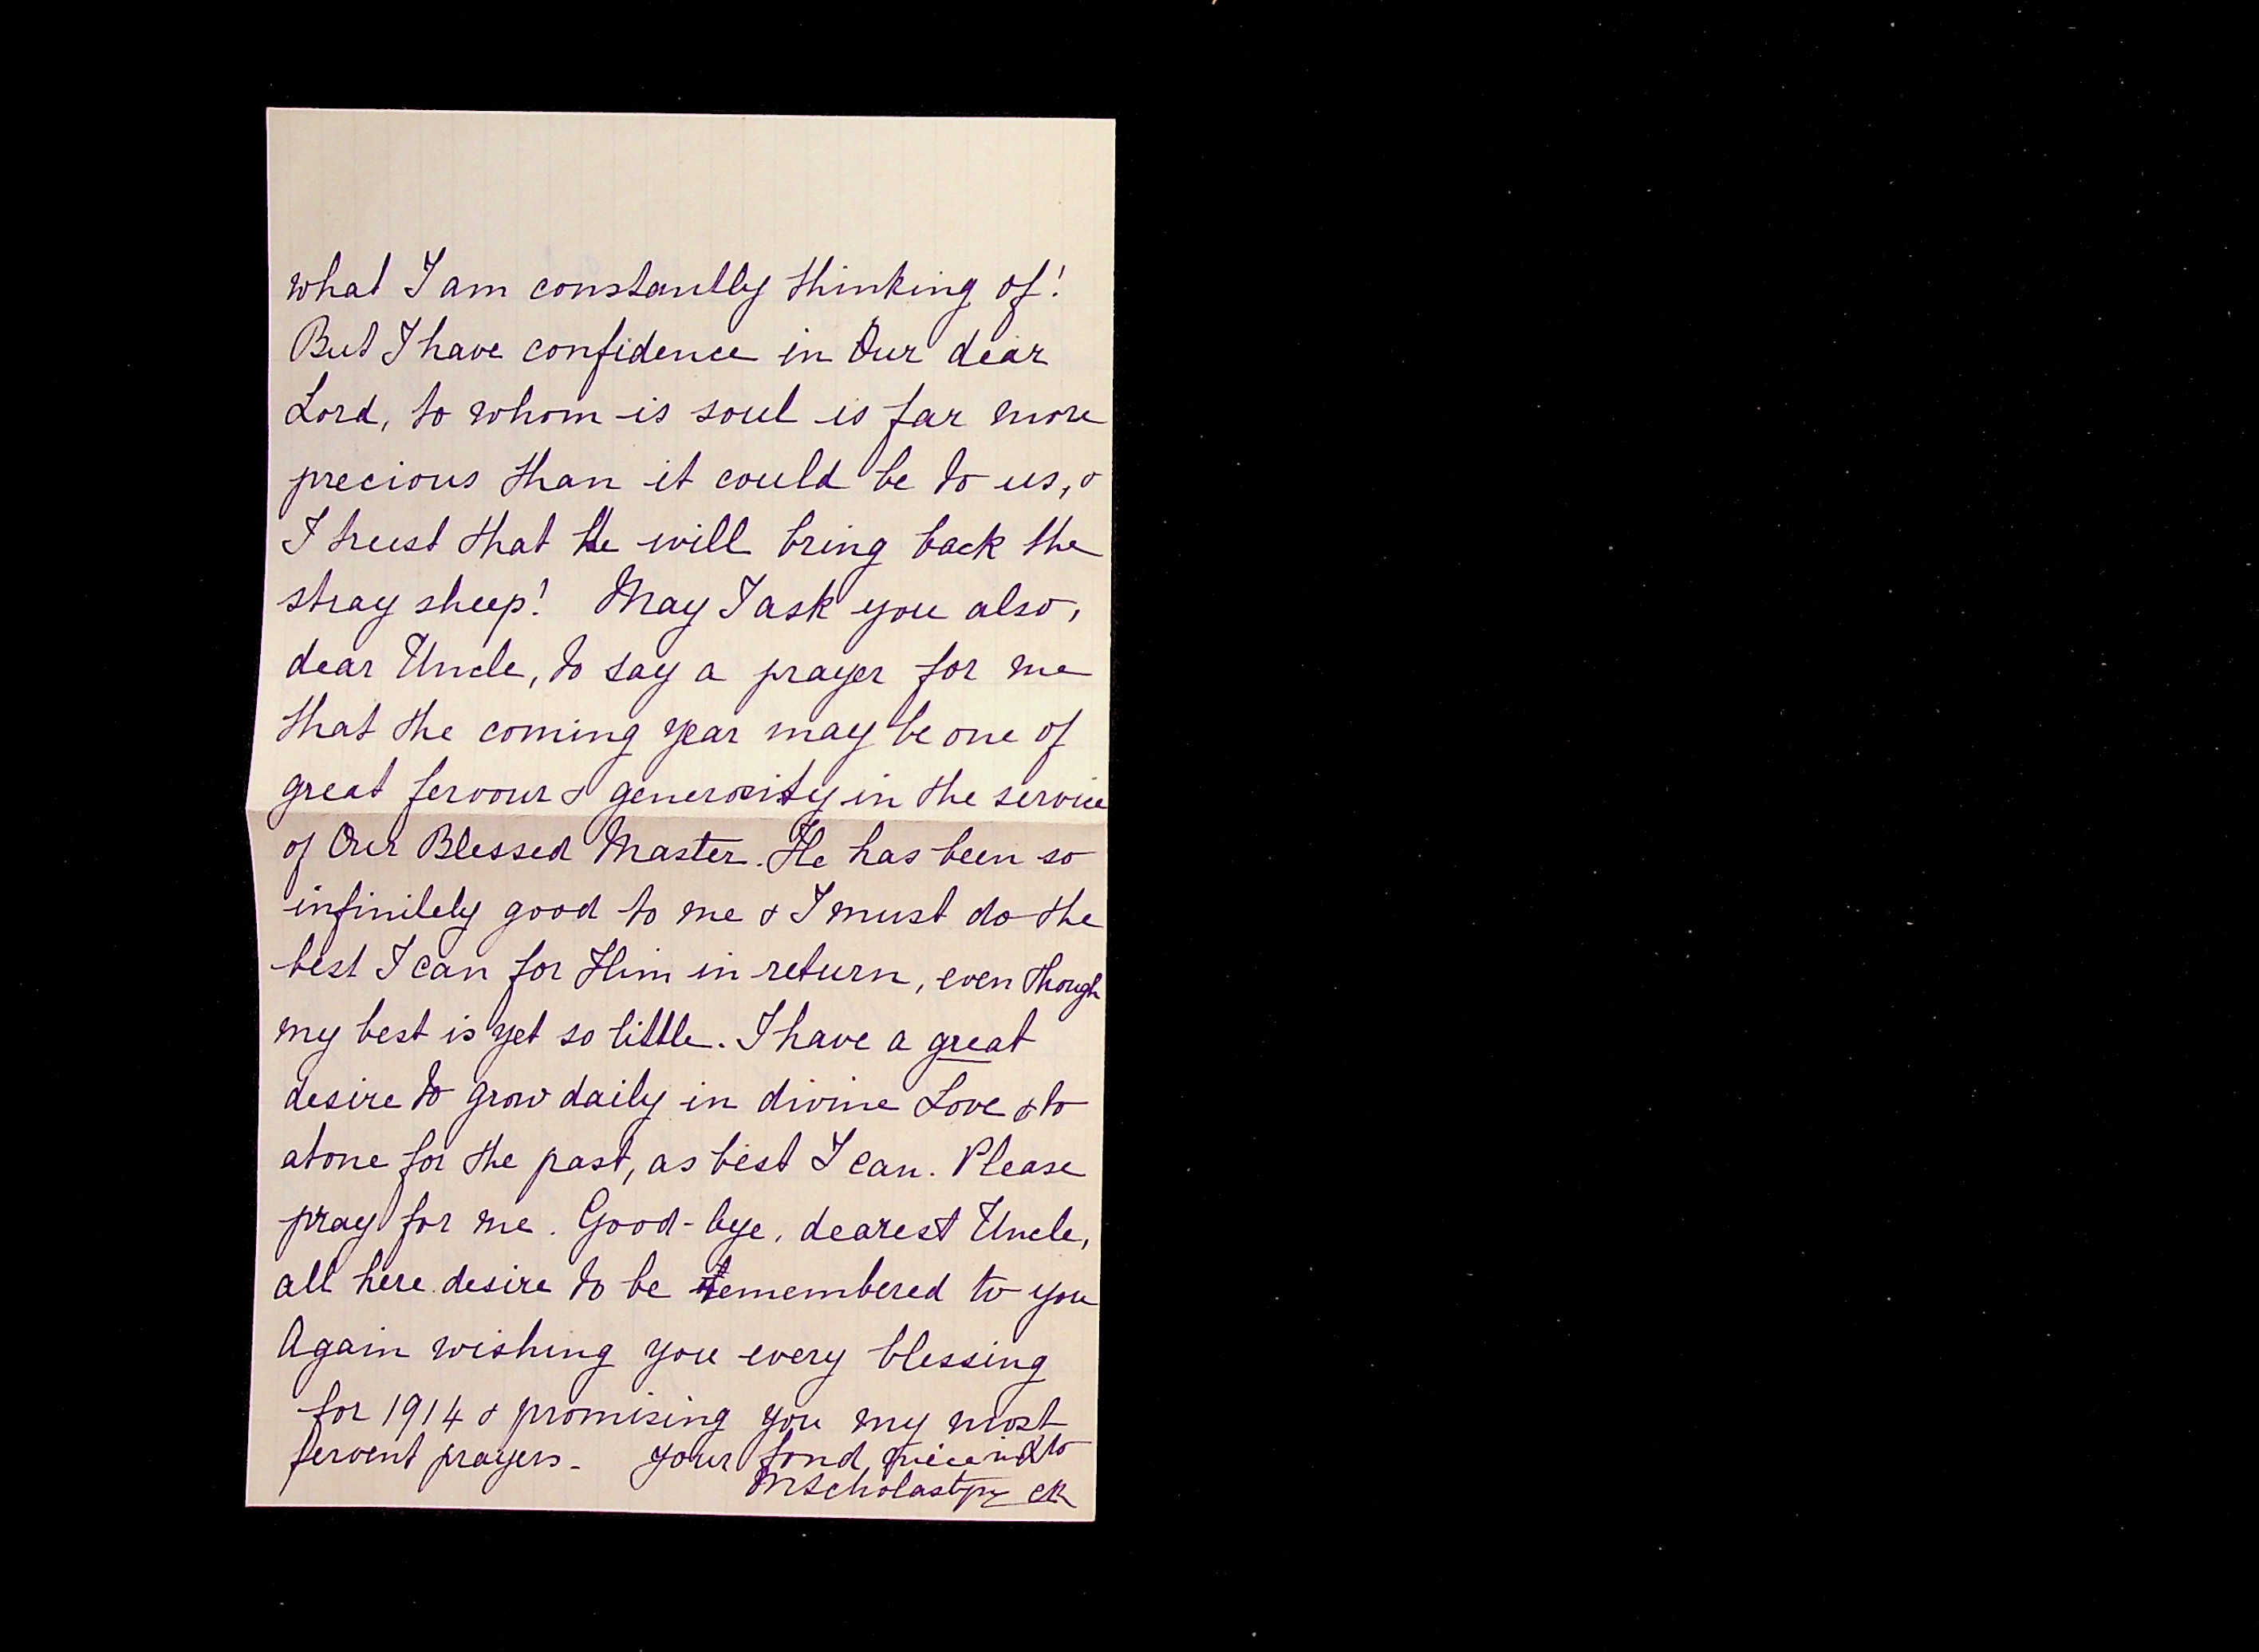 what I am constantly thinking of!
But I have confidence in Our dear
Lord, to whom is soul is far more
precious than it could be to us, &
I trust that He will bring back the
stray sheep! May I ask you also,
dear Uncle, to say a prayer for me
that the coming year may be one of
great fervour & generosity in the service
of Our Blessed Master. He has been so
infinitely good to me & I must do the
best I can for Him in return, even though
my best is yet so little. I have a great
desire to grow daily in divine Love & to
atone for the past, as best I can. Please
pray for me. Good-bye, dearest Uncle,
all here desire to be remembered to you
Again wishing you every blessing
for 1914 & promising you my most
fervent prayers - your fond niece in